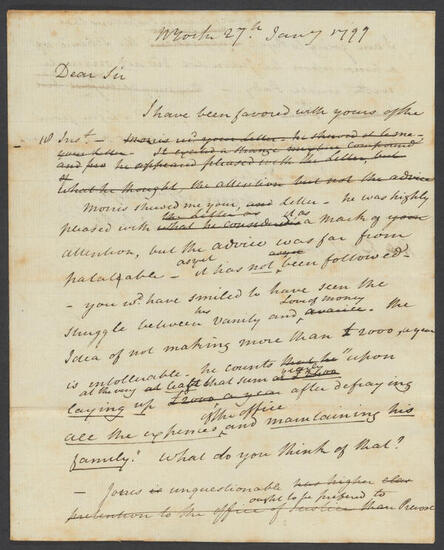 NYork 27th Jany 1799
Dear Sir
I have been favored with yours of the
18 Inst. — Morris recd your letter — he showed it to me —
your letter — It caused a strange
and he appeared pleased with the letter, but
what he thought, the attention but not the advice
Morris showed me your, and letter — he was highly
the letter as it as
pleased with what he considered a mark of your
attention, but the advice was far from
as yet
palatable — it has not been followed —
— you wd have smiled to have seen the
his Love of money
struggle between vanity and avarice. the
Idea of not making more than £2000, a year
is intollerable — he counts that he "upon
at the very at least that sum
laying up £2000 a year after defraying
of the office
all the expences, and maintaining his
family." What do you think of that?
— Jones is unquestionable has higher
ought to be prefered to
pretention to the office of Justice than Prevost